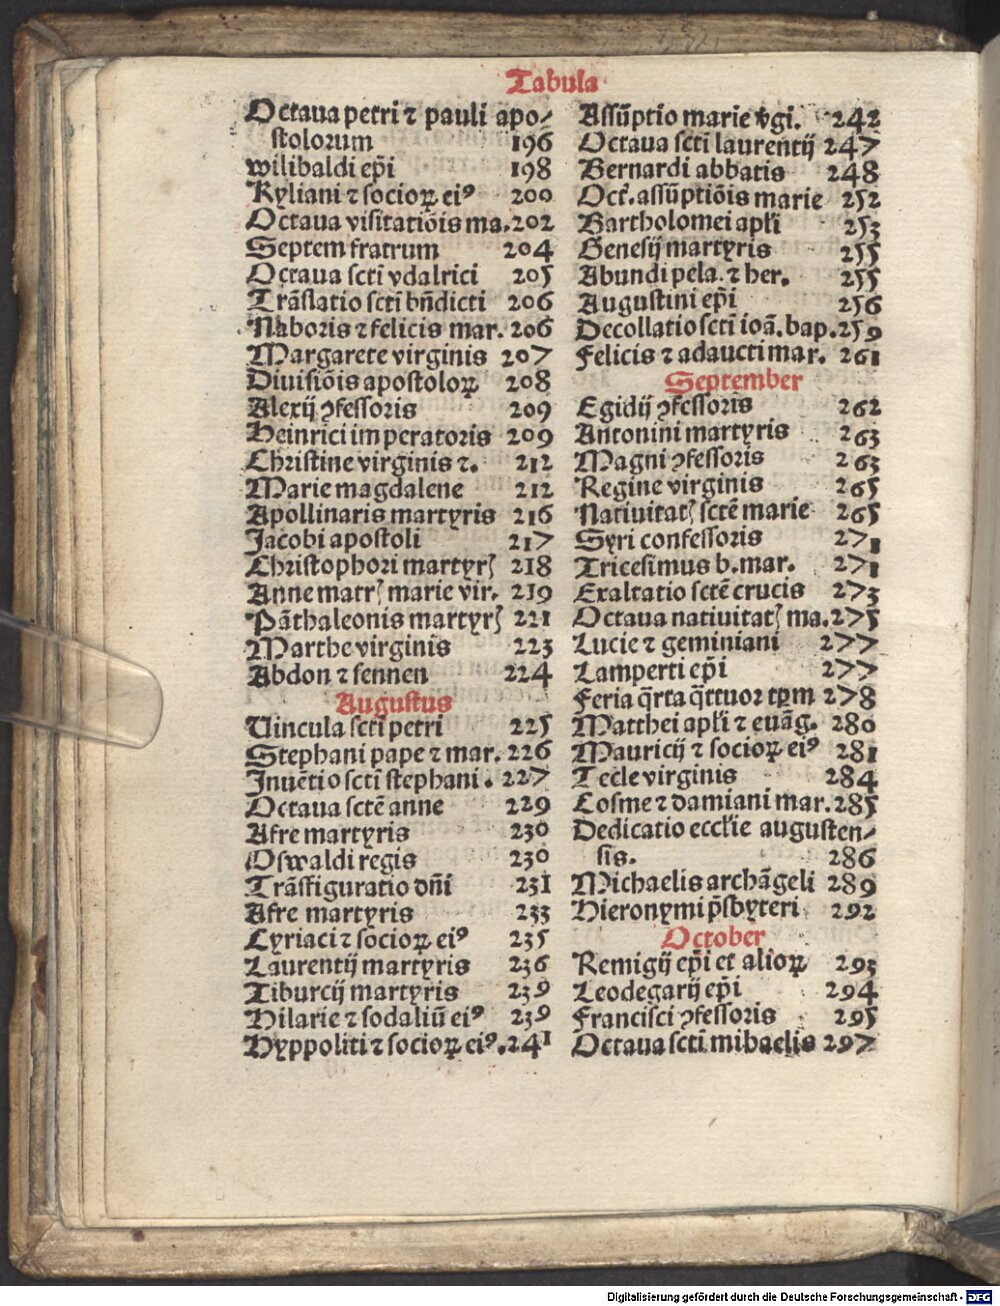 Tabula
Octaua petri ⁊ pauli apo⸗
stolorum 196
wilibaldi ep̄i 198
Kyliani ⁊ socioꝝ eiꝰ 200
Octaua visitatiōis ma. 202
Septem fratrum 204
Octaua sctī vdalrici 205
Trāslatio sctī bn̄dicti 206
Naboris ⁊ felicis mar. 206
Margarete virginis 207
Diuisiōis apostoloꝝ 208
Alexij ꝯfessoris 209
Heinrici imperatoris 209
Christine virginis ⁊. 212
Marie magdalene 212
Apollinaris martyris 216
Jacobi apostoli 217
Christophori martyrꝭ 218
Anne matrꝭ marie vir. 219
Pāthaleonis martyrꝭ 221
Marthe virginis 223
Abdon ⁊ sennen 224
Augustus
Uincula sctī petri 225
Stephani pape ⁊ mar. 226
Inuētio sctī stephani. 227
Octaua sctē anne 229
Afre martyris 230
Oswaldi regis 230
Trāsfiguratio dn̄i 231
Afre martyris 233
Cyriaci ⁊ socioꝝ eiꝰ 235
Laurentij martyris 236
Tiburcij martyris 239
Hilarie ⁊ sodaliū eiꝰ 239
Hyppoliti ⁊ socioꝝ eiꝰ. 241
Assūptio marie v̄gi. 242
Octaua sctī laurentij 247
Bernardi abbatis 248
Oct̄. assūptiōis marie 252
Bartholomei apl̄i 253
Genesij martyris 255
Abundi pela. ⁊ her. 255
Augustini ep̄i 256
Decollatio sctī ioā. bap. 259
Felicis ⁊ adaucti mar. 261
September
Egidij ꝯfessoris 262
Antonini martyris 263
Magni ꝯfessoris 263
Regine virginis 265
Natiuitatꝭ sctē marie 265
Syri confessoris 271
Tricesimus b. mar. 271
Exaltatio sctē crucis 273
Octaua natiuitatꝭ ma. 275
Lucie ⁊ geminiani 277
Lamperti ep̄i 277
Feria q̄rta q̄ttuor tp̄m 278
Matthei apl̄i ⁊ euāg. 280
Mauricij ⁊ socioꝝ eiꝰ 281
Tecle virginis 284
Cosme ⁊ damiani mar. 285
Dedicatio eccl̄ie augusten⸗
sis. 286
Michaelis archāgeli 289
Hieronymi p̄sbyteri 292
October
Remigij ep̄i et alioꝝ 293
Leodegarij ep̄i 294
Francisci ꝯfessoris 295
Octaua sctī mihaelis 297
Digitalisierung gefördert durch die Deutsche Forschungsgemeinschaft - DFG